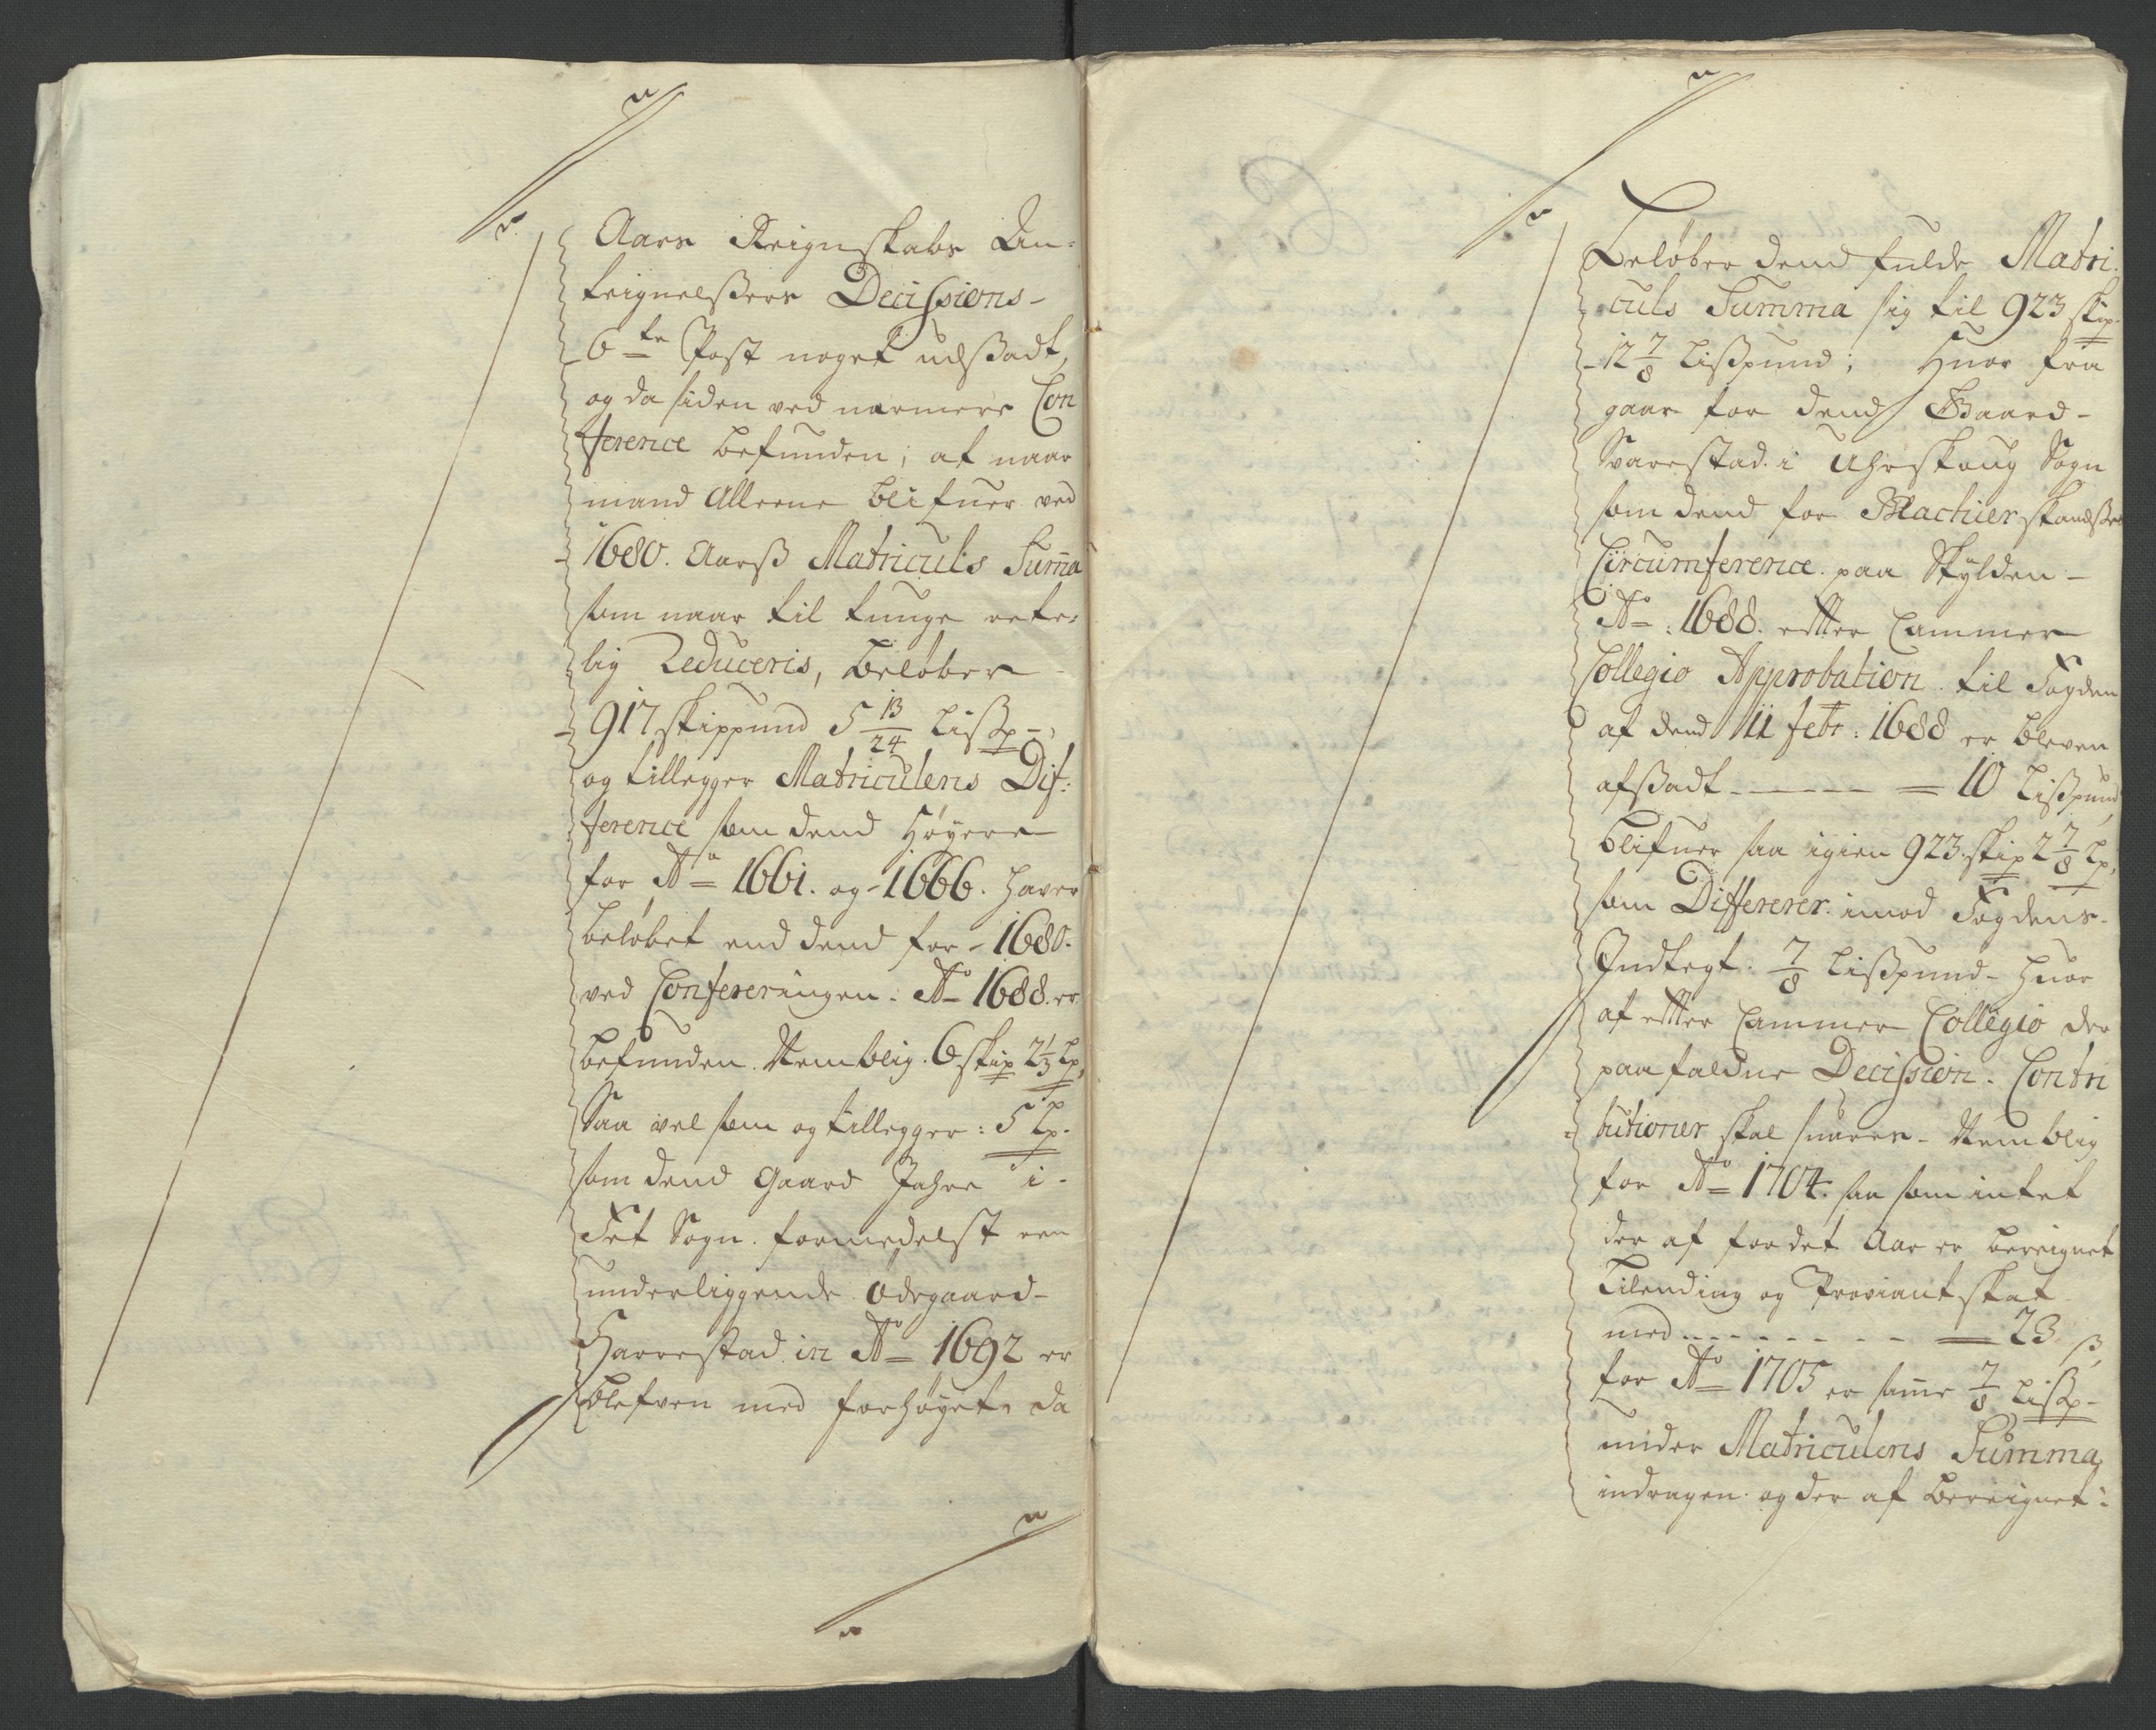 Aars Reignskabs An-
teignelßers Decissions-
6te Post noget udßadt,
og da siden ved nærmere Con
ference befunden; at naar
mand Alleene blifuer ved
1680. Aarß Matriculs Suma
som naar til tunge rete-
lig Reduceris, beløber
917 skippund 5 13/24 Lißp-
og tillegger Matriculens Dif:
ference som dend Høyere
for Ao 1661. og 1666. haver
beløbet end dend for - 1680.
ved Confereringen: Ao 1688. er
befunden Nemblig. 6 skip 2 1/3 Lp,
Saa vel som og tillegger: 5 Lp.
som dend Gaard Jahre i-
Fet Sogn. formedelst een
underliggende Ødegaard-
Harrestad in Ao 1692 er
blefven med forhøyet, da
Beløber dend fulde Matri-
culs Summa sig til 923 skip
12 7/8 Lißpund; Huor fra
gaar for dend Gaard-
Svarestad i Uhrskoug Sogn
som dend for Blachier skandßes
Circumference paa Skylden-
Ao: 1688. effter Cammer
Collegio Approbation til Fogden
af dend 11 febr: 1688 er bleven
afßadt - - - - - = 10 Lißpund,
blifuer saa igien 923. skip 2 7/8 Lp,
som Differerer imod Fogdens-
Indtegt: 7/8 Lißpund - huor
af effter Cammer Collegio der
paa faldne Decission. Contri
butioner skal suares - Nemblig
for Ao 1704. saa som intet
der af for det Aar er bereignet
Leilending og Proviant skat
med - - - - - - - = 23 ß,
for Ao 1705 er same 7/8 Lißp-
under Matriculens Summa,
indragen og der af bereignet: